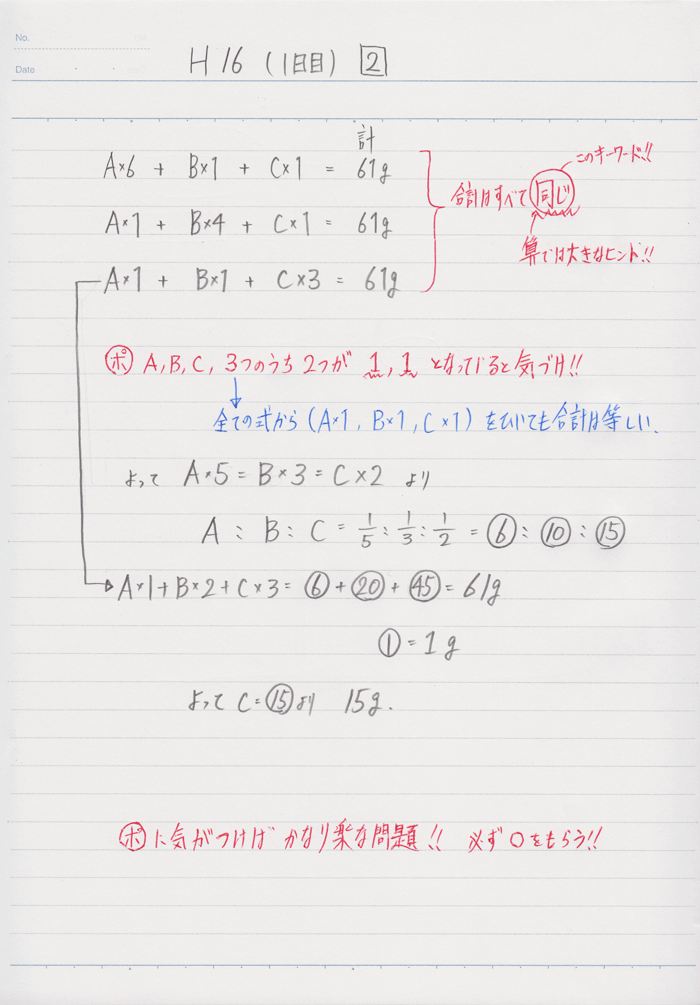 No.
Date
H16 (1日目) 2
計
A×6 + B×1 + C×1 = 61g
このキーワード!!
A×1 + B×4 + C×1 = 61g
合計はすべて同じ
算では大きなヒント!!
A×1 + B×1 + C×3 = 61g
ポ A, B, C, 3つのうち2つが 1, 1 となっていると気づけ!!
全ての式から (A×1, B×1, C×1) をひいても合計は等しい.
よって A×5 = B×3 = C×2 より
A : B : C = 1/5 : 1/3 : 1/2 = ⑥ : ⑩ : ⑮
A×1+B×2+C×3= ⑥ + ⑳ + ㊺ = 61g
① = 1g
よって C=⑮より 15g.
ポ に気がつけば かなり楽な問題!! 必ず○をもらう!!